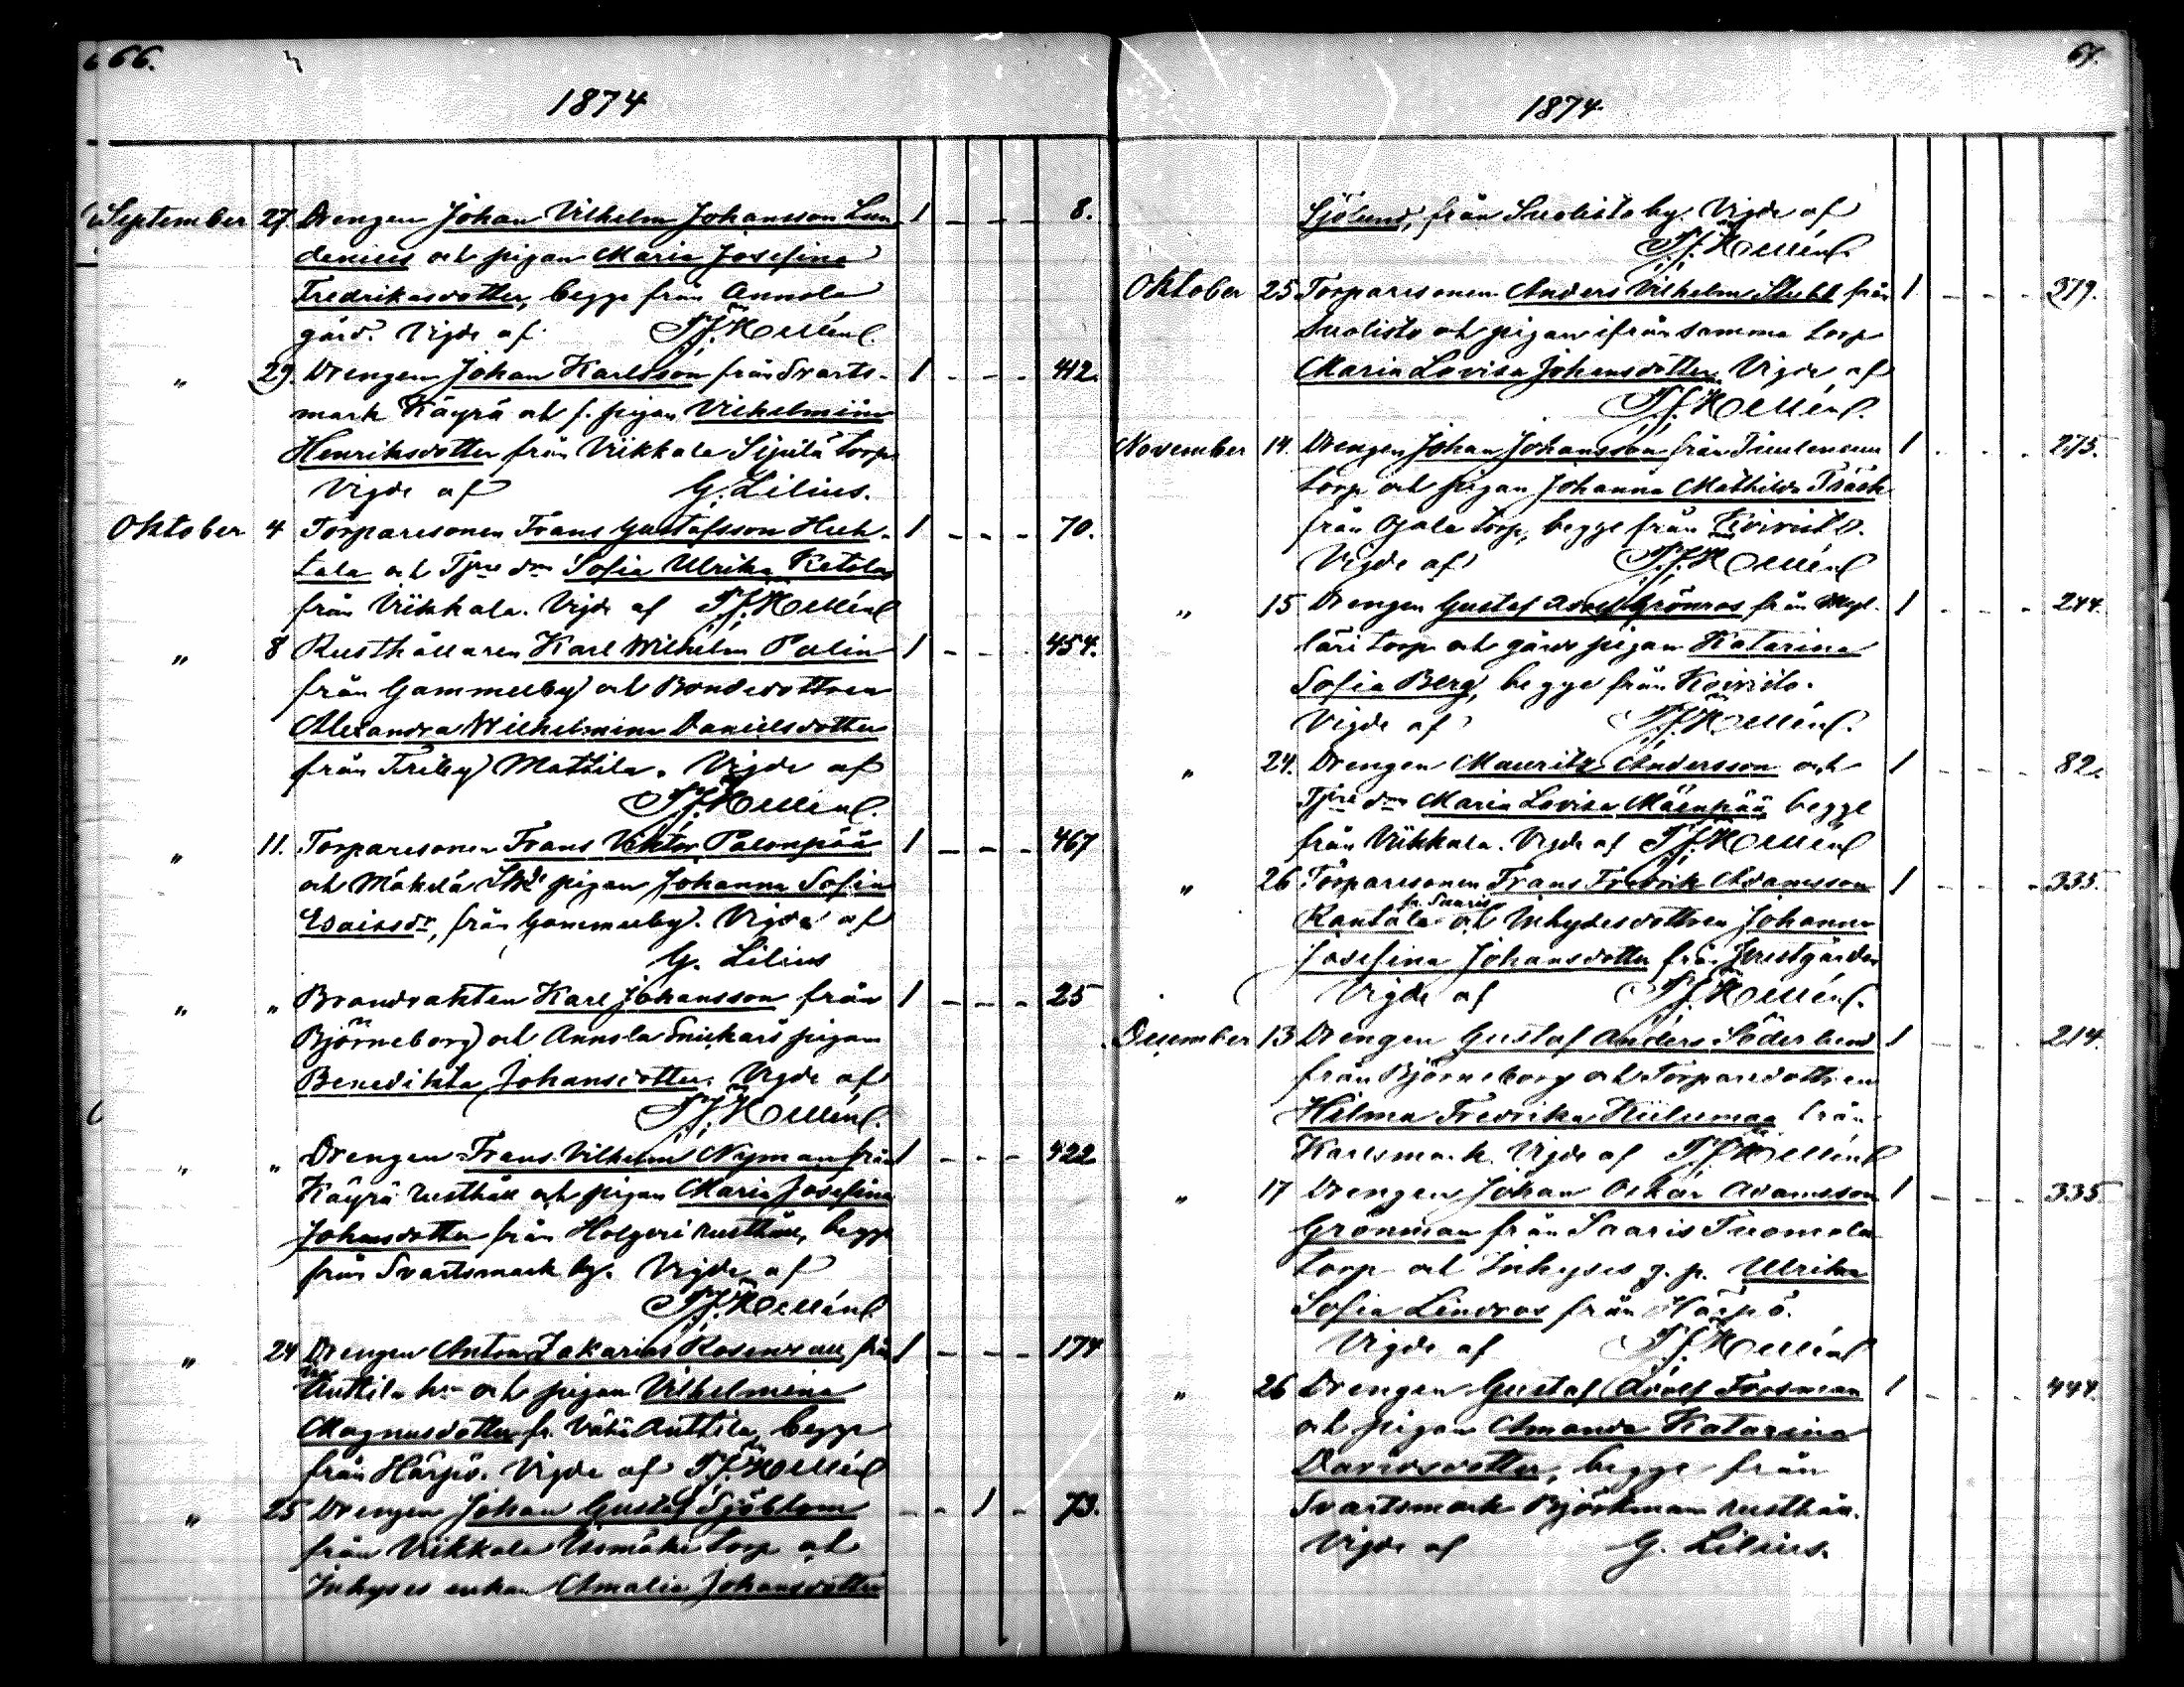 66.
1874
September 27. Drengen Johan Vilhelm Johansson Lun 1 - - - 8.
denius och pigan Maria Josefina
Fredriksdotter, begge från Annola
gård. Vigde af
" 29. Drengen Johan Karlsson från Svarts- 1 - - - 412.
mark Käyrä och f. pigan Vilhelmina
Henriksdotter från Viikkala Sipilä torp.
Vigde af G. Lilius.
Oktober 4 Torparesonen Frans Gustafsson Huh- 1 - - - 70.
tala och Tjre dm Sofia Ulrika Ketola
från Viikkala. Vigde af
" 8 Rusthållaren Karl Wilhelm Palin 1 - - - 454.
från Gammelby och Bondedottren
Alexandra Wilhelmina Danielsdotter
från Friby Mattila. Vigde af
" 11. Torparesonen Frans Viktor Palonpää 1 - - - 467
och Mäkelä pigan Johanna Sofia
Esaiasdr, från Gammelby. Vigde af
G. Lilius
" " Brandvakten Karl Johansson från 1 - - - 25
Björneborg och Annola Snickars pigan
Benedikta Johansdotter. Vigde af
" " Drengen Frans Vilhelm Nyman från 1 - - - 422
Käyrä rusthåll och pigan Maria Josefina
Johansdotter från Holgeri rusthåll, begge
från Svartsmark by. Vigde af
" 24 Drengen Anton Zakarias Rosenvall från 1 - - - 174
Anttila hn och pigan Vilhelmina
Magnusdotter fr. Vähä Anttila, begge
från Härpö. Vigde af
" 25 Drengen Johan Gustaf Sjöblom - - 1 - 73.
från Viikkala Uusmäki torp och
Inhyses enkan Amalia Johansdotter
67.
1874.
Sjölund, från Suolisto by. Vigde af
Oktober 25 Torparesonen Anders Vilhelm Stubb från 1 - - - 379.
Suolisto och pigan ifrån samma torp
Maria Lovisa Johansdotter. Vigde af
November 14. Drengen Johan Johansson från 1 - - - 275.
torp och pigan Johanna Mathilda
från Ojala torp, begge från Koivisto.
Vigde af
" 15 Drengen Gustaf Adolf Grönroos från Myl- 1 - - - 244.
läri torp och gårds pigan Katarina
Sofia Berg, begge från Koivisto.
Vigde af
" 24. Drengen Mauritz Andersson och 1 - - - 82.
Tjre dm Maria Lovisa Mäenpää, begge
från Viikkala. Vigde af
" 26 Torparesonen Frans Fredrik Adamsson 1 - - - 335.
fr. Saaris
Rantala och Inhysesdottren Johanna
Josefina Johansdotter från
Vigde af
December 13 Drengen Gustaf Anders Söderlund 1 - - - 214.
från Björneborg och Torparedottren
Hilma Fredrika från
Karlsmark. Vigde af
" 17 Drengen Johan Oskar Adamsson 1 - - - 335
Grönman från Saaris Tuomola
torp och Inhyses g. p. Ulrika
Sofia Lindroos från Härpö.
Vigde af
" 26 Drengen Gustaf Adolf Forsman 1 - - - 444.
och pigan Amanda Katarina
Davidsdotter, begge från
Svartsmark Björkman rusthåll.
Vigde af G. Lilius.